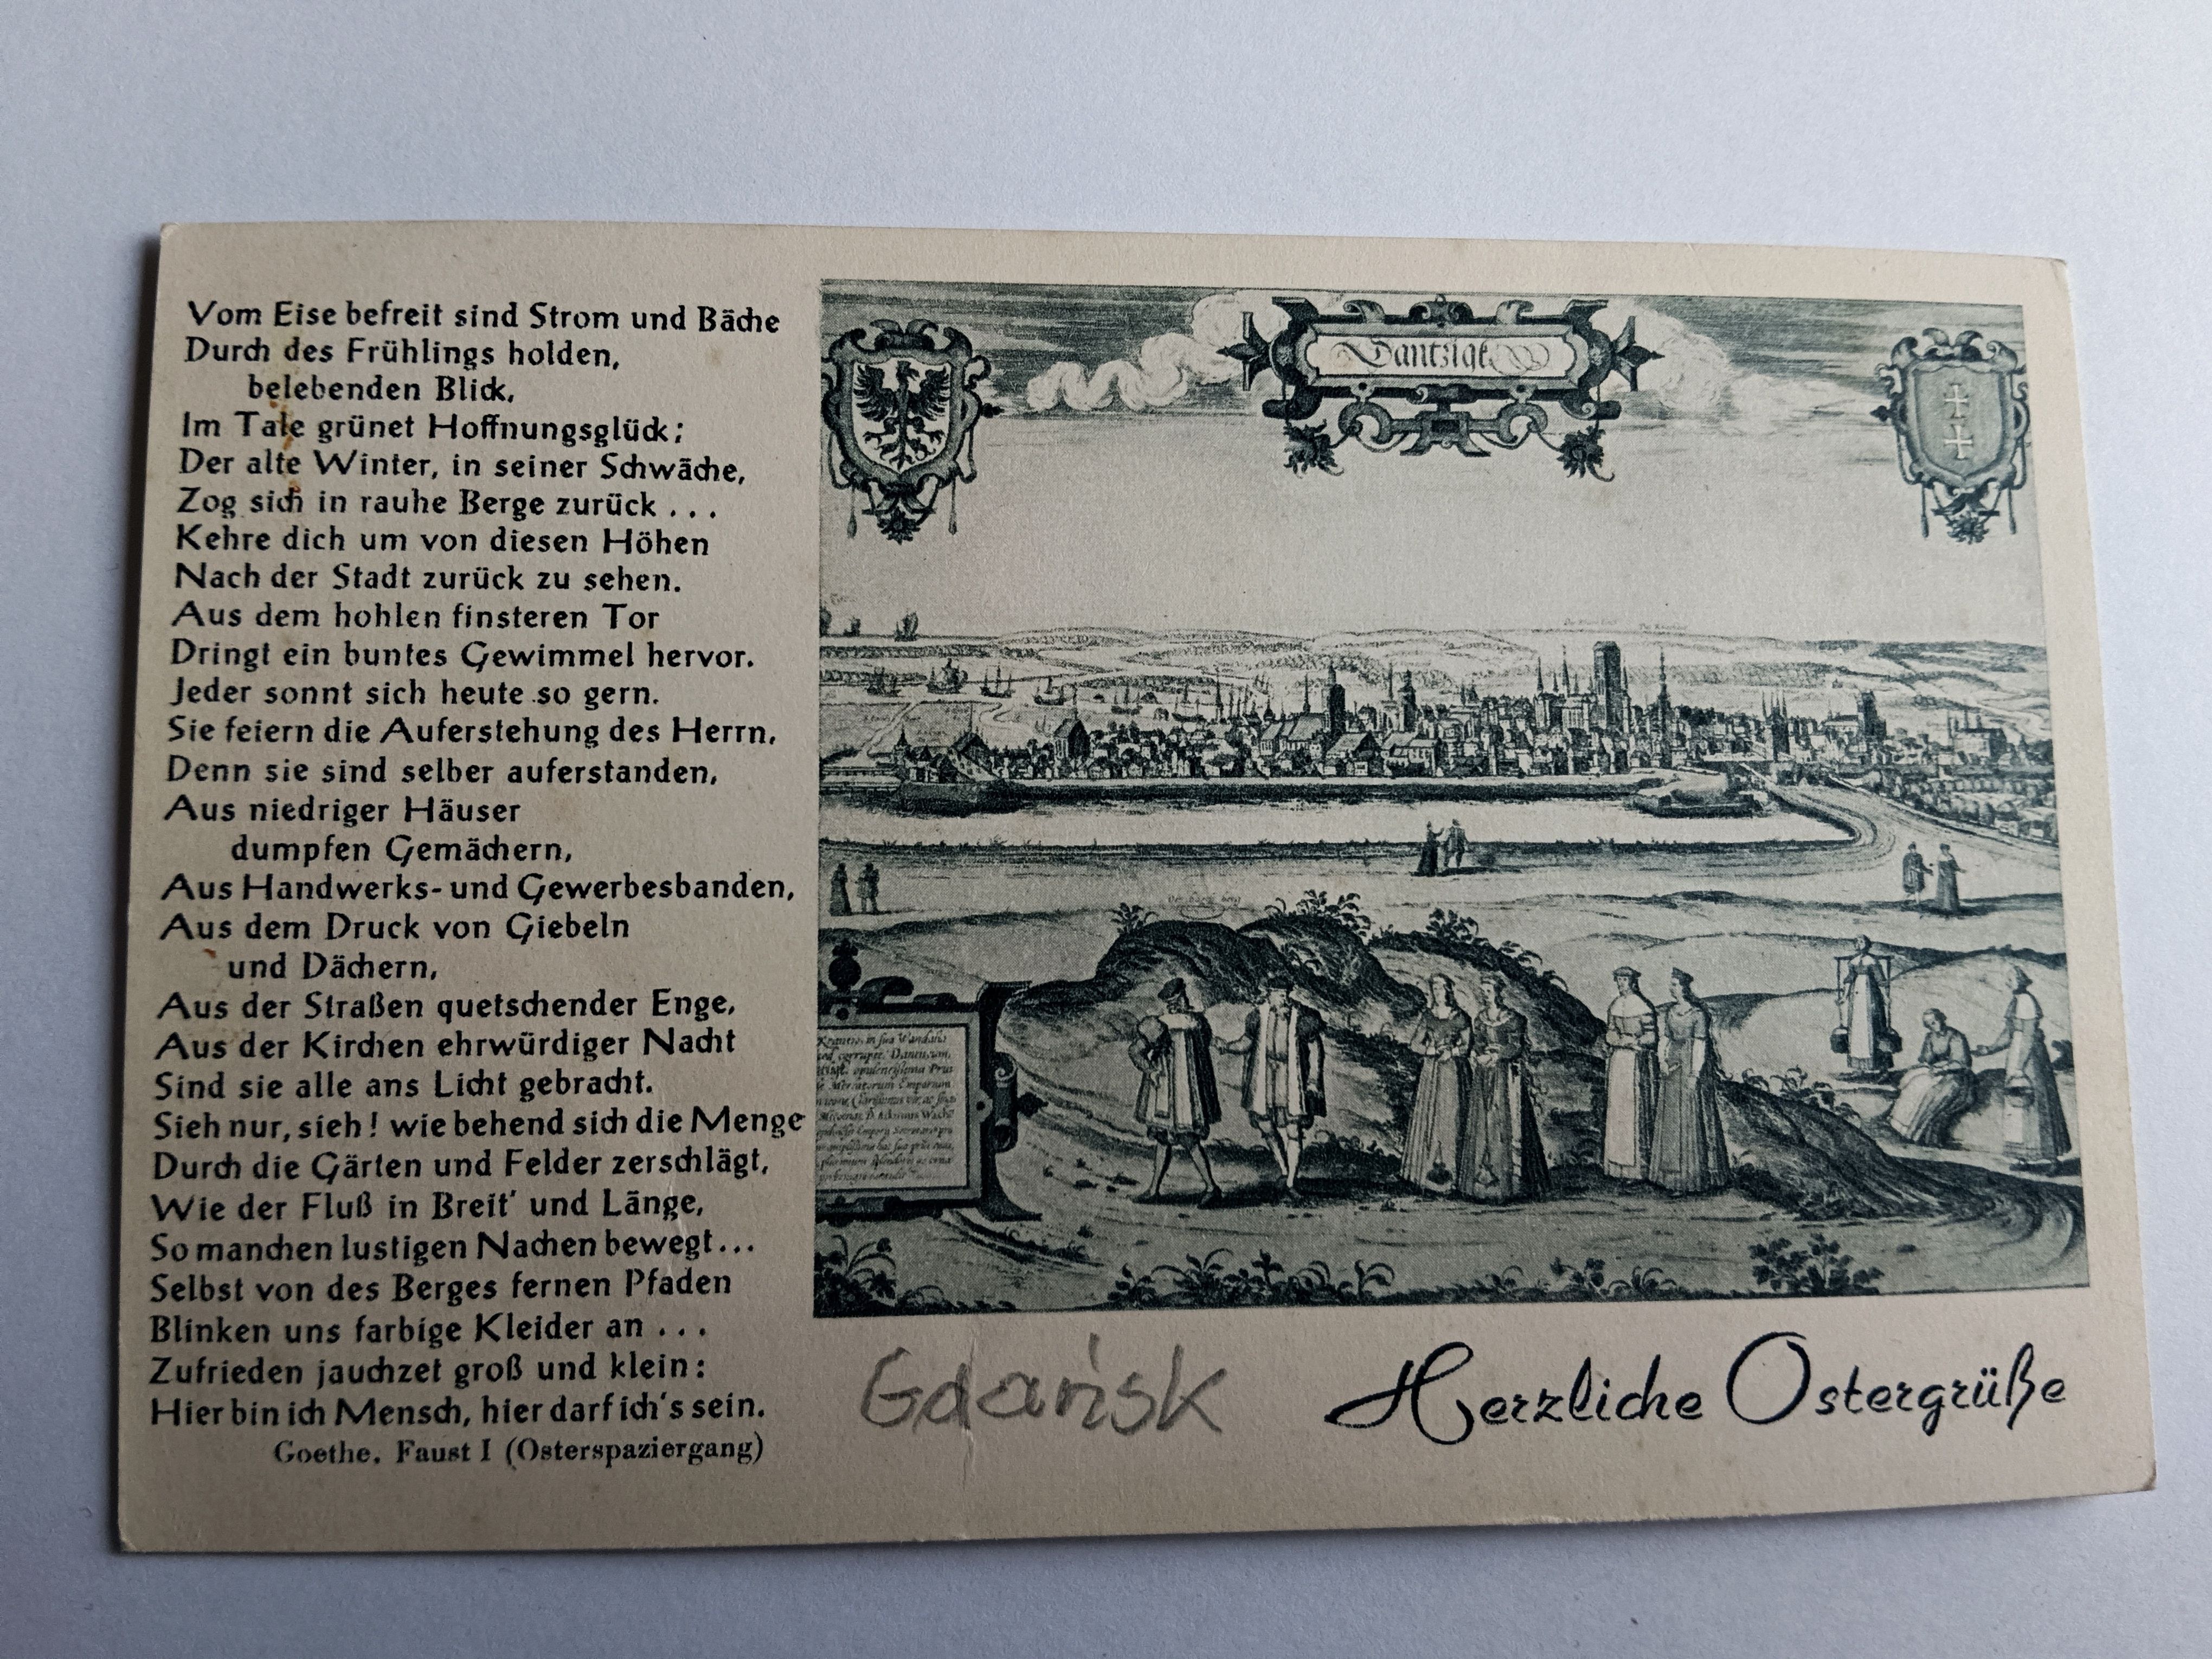 Vom Eise befreit sind Strom und Bäche
Durch des Frühlings holden,
belebenden Blick,
Im Tale grünet Hoffnungsglück;
Der alte Winter, in seiner Schwäche,
Zog sich in rauhe Berge zurück ...
Kehre dich um von diesen Höhen
Nach der Stadt zurück zu sehen.
Aus dem hohlen finsteren Tor
Dringt ein buntes Gewimmel hervor.
Jeder sonnt sich heute so gern.
Sie feiern die Auferstehung des Herrn,
Denn sie sind selber auferstanden,
Aus niedriger Häuser
dumpfen Gemächern,
Aus Handwerks- und Gewerbesbanden,
Aus dem Druck von Giebeln
und Dächern,
Aus der Straßen quetschender Enge,
Aus der Kirchen ehrwürdiger Nacht
Sind sie alle ans Licht gebracht.
Sieh nur, sieh! wie behend sich die Menge
Durch die Gärten und Felder zerschlägt,
Wie der Fluß in Breit' und Länge,
So manchen lustigen Nachen bewegt...
Selbst von des Berges fernen Pfaden
Blinken uns farbige Kleider an ...
Zufrieden jauchzet groß und klein:
Hier bin ich Mensch, hier darf ich's sein.
Goethe, Faust I (Osterspaziergang)
Dantzigt
corrupte, Dantiscum,
opulentissima Prus
Mercatorum Emporium
Gdańsk
Herzliche Ostergrüße